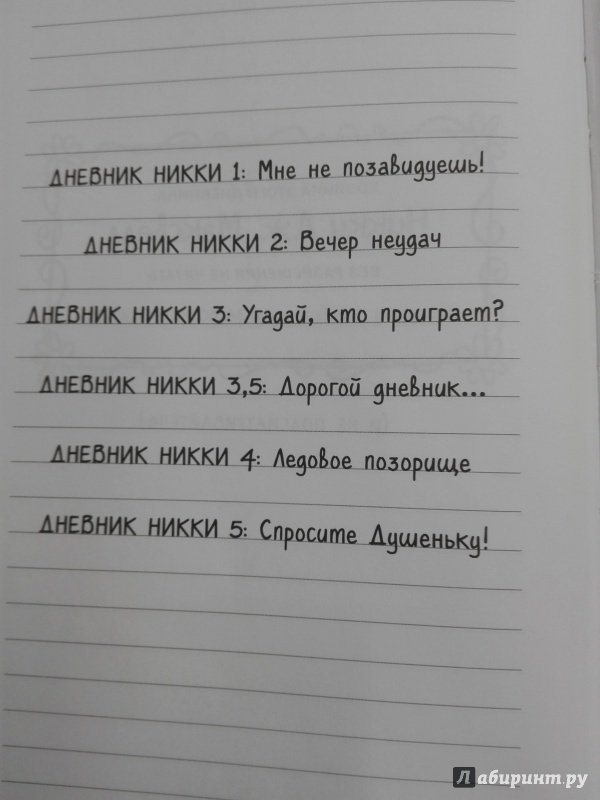 ДНЕВНИК НИККИ 1: Мне не позавидуешь!
ДНЕВНИК НИККИ 2: Вечер неудач
ДНЕВНИК НИККИ 3: Угадай, кто проиграет?
ДНЕВНИК НИККИ 3,5: Дорогой дневник...
ДНЕВНИК НИККИ 4: Ледовое позорище
ДНЕВНИК НИККИ 5: Спросите Душеньку!
Лабиринт.ру